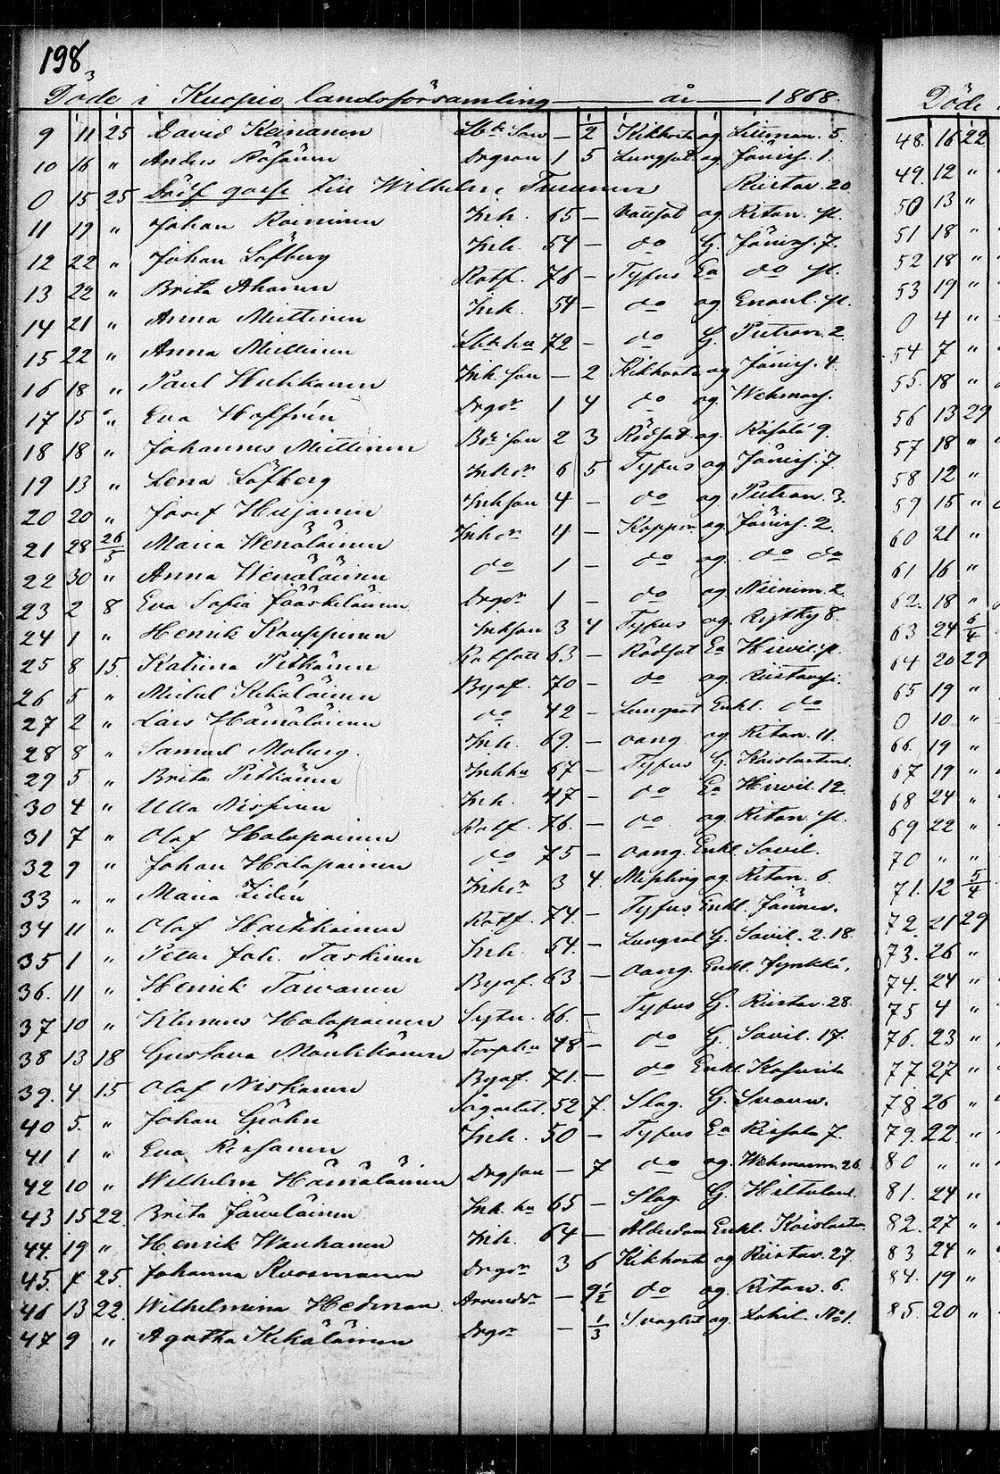 198
3
Döde i Kuopio landsförsamling år 1868
9 11 25 David Keinanen Sbde Son — 2 Kikhosta og Litman. 5
10 16 " Anders Räsänen Drgson 1 5 Lungsot og Jänisj. 1.
0 15 25 Död gosse till Wilhelm Turunen Riistav. 20
11 19 " Johan Roininen Inh. 65 — Vattsot og Ritan. pl.
12 22 " Johan Löfberg Inh. 54 — do G. Jänisj. 7.
13 22 " Brita Ahonen Rotf. 76 — Typus Ea do pl.
14 21 " Anna Miettinen Inh. 54 — do og Enanl. pl.
15 22 " Anna Miettinen Sbde hu 72 — do G. Putron. 2
16 18 " Paul Huhkanen Inh. Son — 2 Kikhosta og Jänisj. 4.
17 15 " Eva Hoffrén Drgdr 1 4 do og Wehmasj.
18 18 " Johannes Miettinen Bde Son 2 3 Rödsot og Räsälä 9.
19 13 " Lena Löfberg Inhdr 6 5 Typus og Jänisj. 7
20 20 " Josef Huljanen Inhson 4 — do og Putron. 3.
21 28 26/5 Maria Wenäläinen Inhdr 4 — Koppor og Jänisj. 2.
22 30 " Anna Wenäläinen do 1 — do og do do
23 2 8 Eva Sofia Jääskeläinen Drgdr 1 — do og Niinim. 2.
24 1 " Henrik Kauppinen Inhson 3 4 Typus og Rytky 8.
25 8 15. Katrina Pitkänen Rotfatt 63 — Rödsot Ea Hirvil. p.
26 5 " Mickel Kekäläinen Byaf. 70 — do og Riistavsi.
27 2 " Lars Hämäläinen do 42 — Lungsot Enkl. do
28 8 " Samuel Moberg. Inh. 69. — oang og Ritan. 11.
29 5 " Brita Pitkänen Inhhu 67 — Typus G. Kaislastenl.
30 4 " Ulla Nissinen Inh. 47 — do Ea Hirvil. 12.
31 7 " Olof Halopainen Rotf. 76. — do og Ritan pl.
32 9 " Johan Halopainen do 75 — oang. Enkl. Savil.
33 " " Maria Lidén Inhdr 3 4. Messling og Ritan. 6.
34 11 " Olof Hartikainen Rotf. 74 — Typus Enkl. Jännev.
35 1 " Petter Joh. Taskinen Inh. 54. — Lungsot G. Savil. 2. 18.
36. 11 " Henrik Taivanen Byaf. 63 — oang. Enkl. Jynkkä.
37 10 " Klemens Halopainen Sytn. 66. — Typus G. Riistav. 28.
38 13 18 Gustava Mönkkönen Torphu 48 — do G. Savil. 17.
39. 4 15 Olof Niskanen Byaf. 71. — do Enkl. Kasurila
40 5. " Johan Gröhn 52 7. Slag. G.
41 1 " Eva Rissanen Inh. 50 — Typus Ea Rissala 7.
42 10 " Wilhelm Hämäläinen Drgson — 7 do og. Wehmasm. 26.
43 15 22. Brita Jauhiainen Inh. hu 65 — Slag G. Hiltulanl.
44. 19 " Henrik Wauhkonen Inh. 64 — Ålderdom Enkl. Kaislasten
45. 7 25. Johanna Kuosmanen Drgdr 3 6 Kikhosta og Riistav. 27.
46 13 22. Wilhelmina Hedman Arendr — 9½ do og Ritan. 6.
47 9 " Agatha Kekäläinen Drgdr — 1/3 Svaghet og Lahil. No 1.
Döde
48. 16 22
49. 12 "
50 13 "
51 18 "
52 18 "
53 19 "
0 4 "
54 7 "
55. 18 "
56 13 29
57 18 "
58 12 "
59 15 "
60 21 "
61 16 "
62. 18 "
63 24 6/4
64 20 29
65 19 "
0 10 "
66. 19 "
67 19 "
68 24 "
69 22 "
70 " "
71. 12 5/4
72. 21 29
73. 26 "
74. 24 "
75 4 "
76. 23 "
77 27 "
78 26 "
79. 22 "
80 " "
81. 24 "
82. 27 "
83 24 "
84. 19 "
85. 20 "